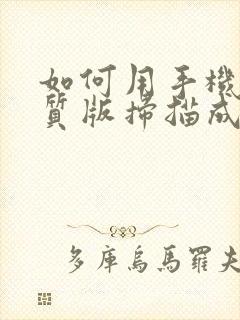 如何用手機
質版掃描成
多庫烏馬羅夫